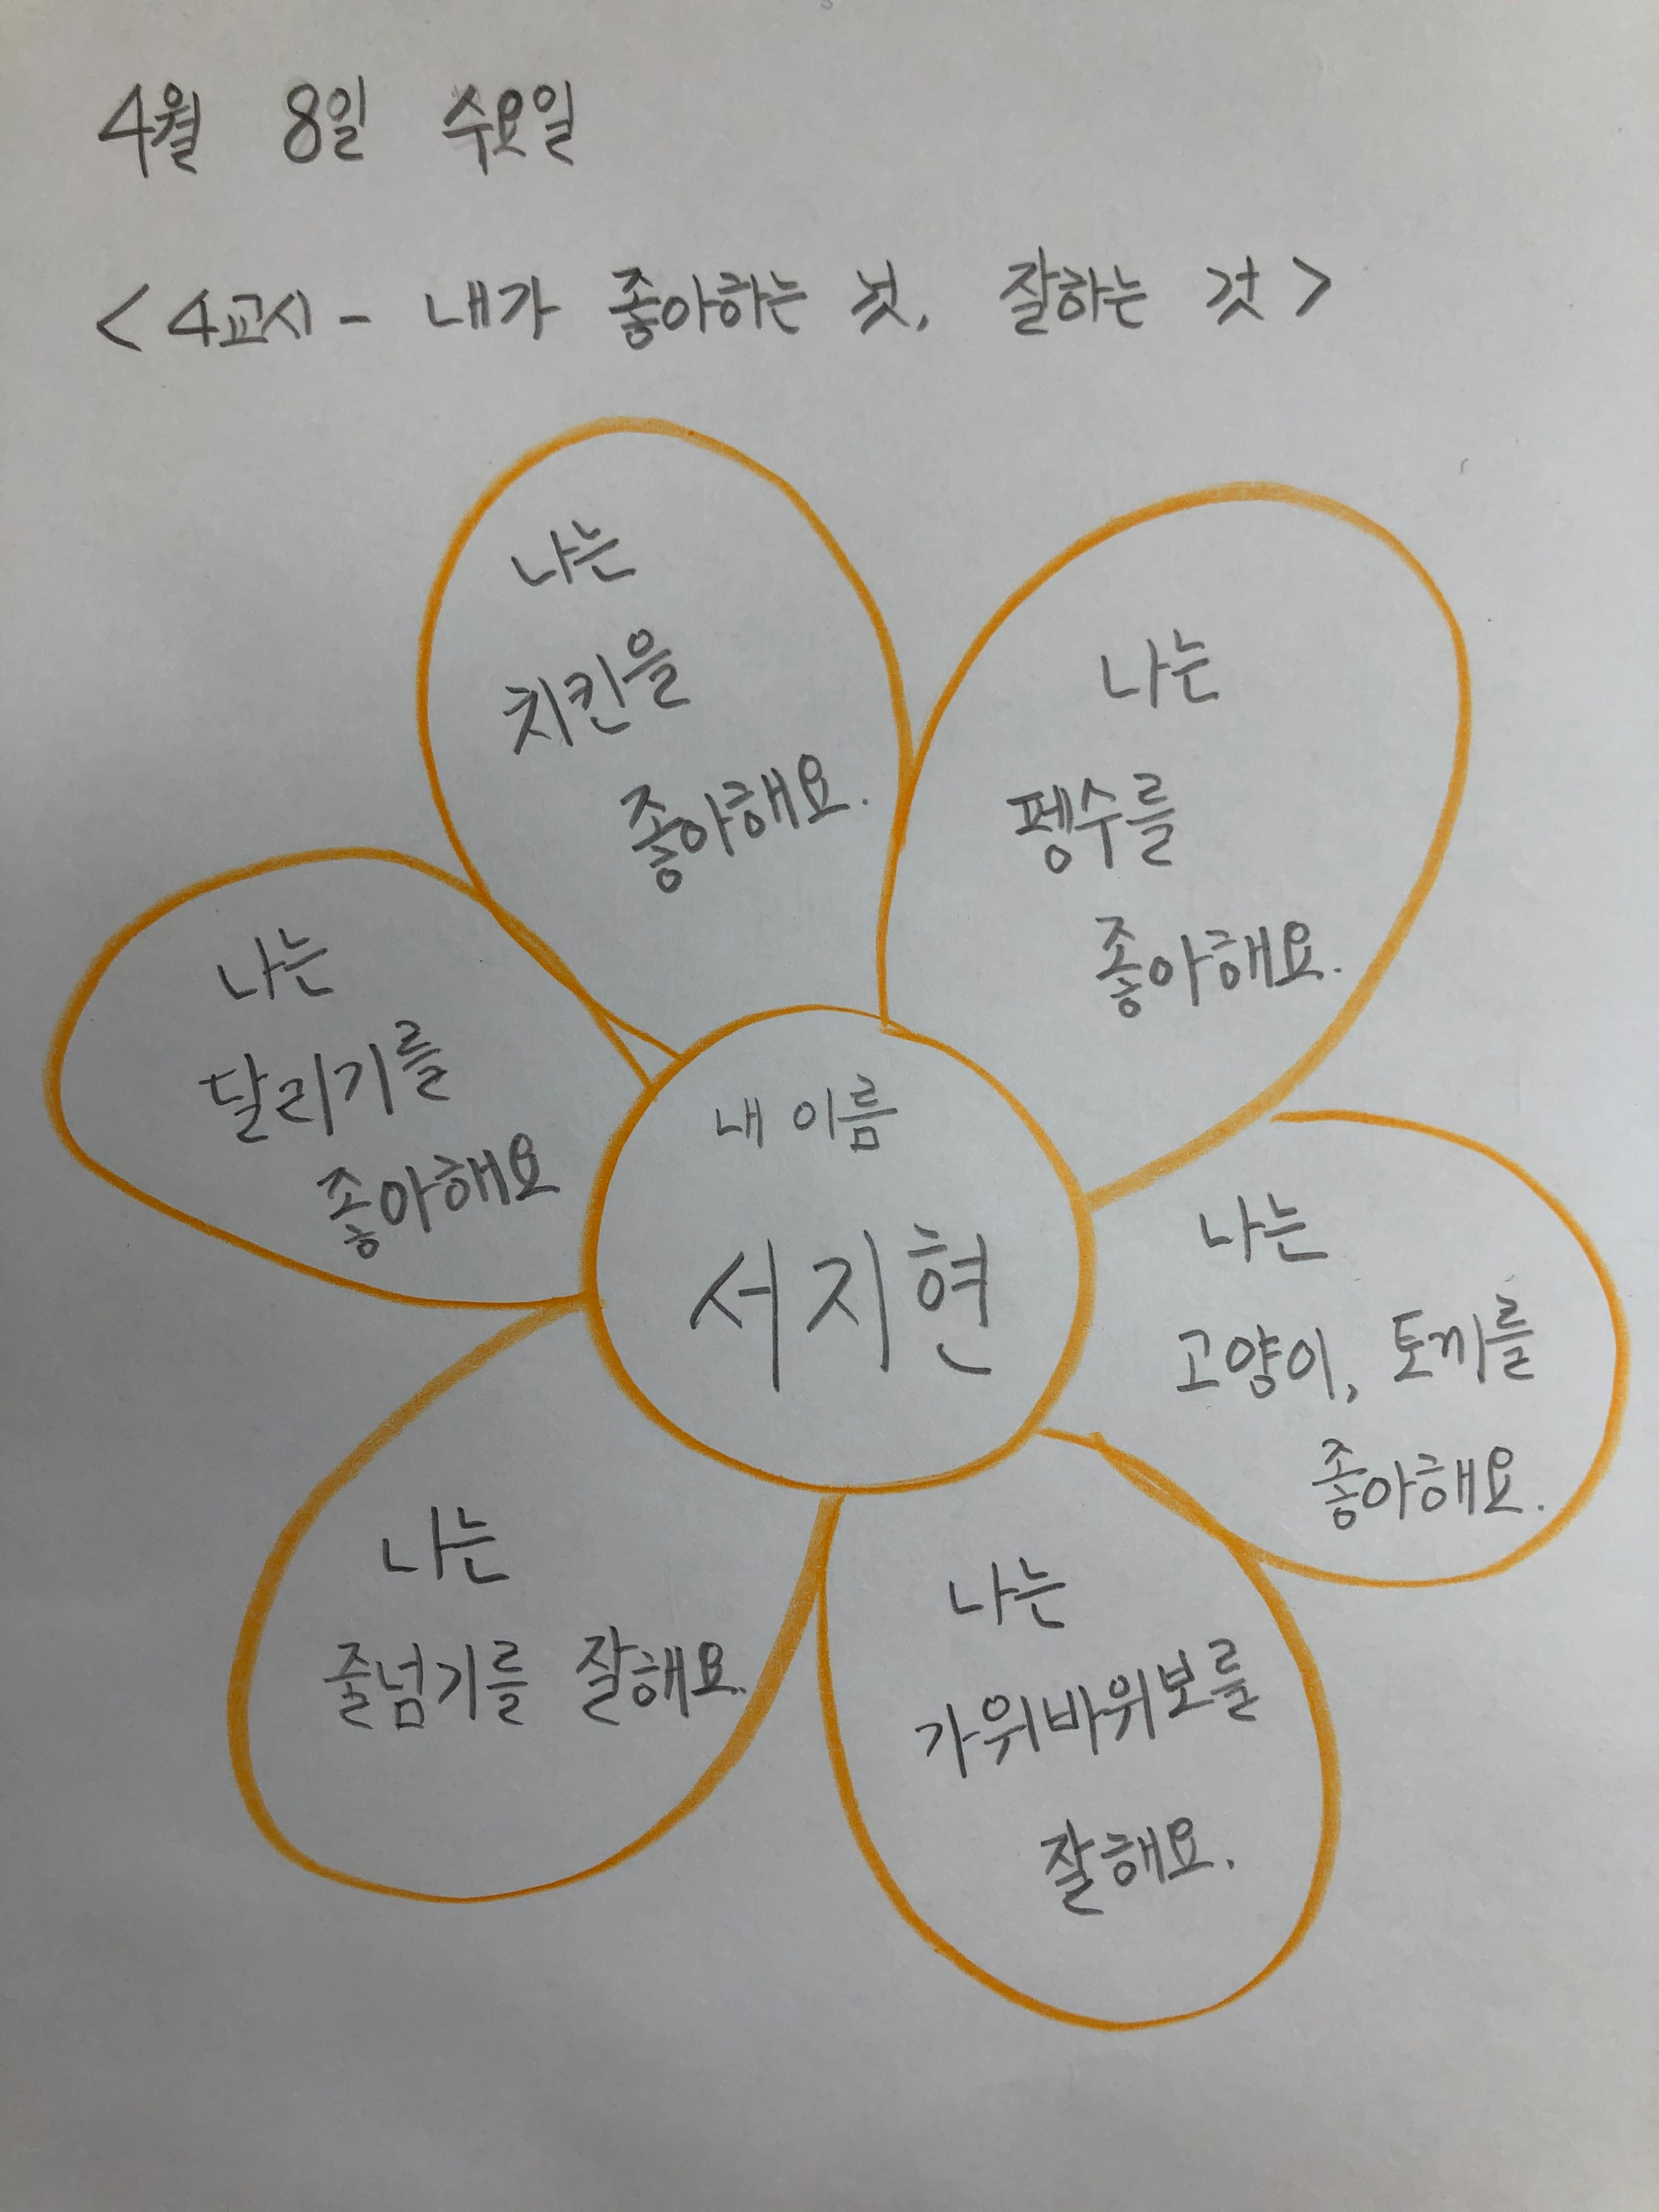 4월 8일 수요일
<4교시 - 내가 좋아하는 것, 잘하는 것>
나는
치킨을
좋아해요.
나는
펭수를
좋아해요.
나는
달리기를
좋아해요
내 이름
서지현
나는
고양이, 토끼를
좋아해요.
나는
줄넘기를 잘해요.
나는
가위바위보를
잘해요.